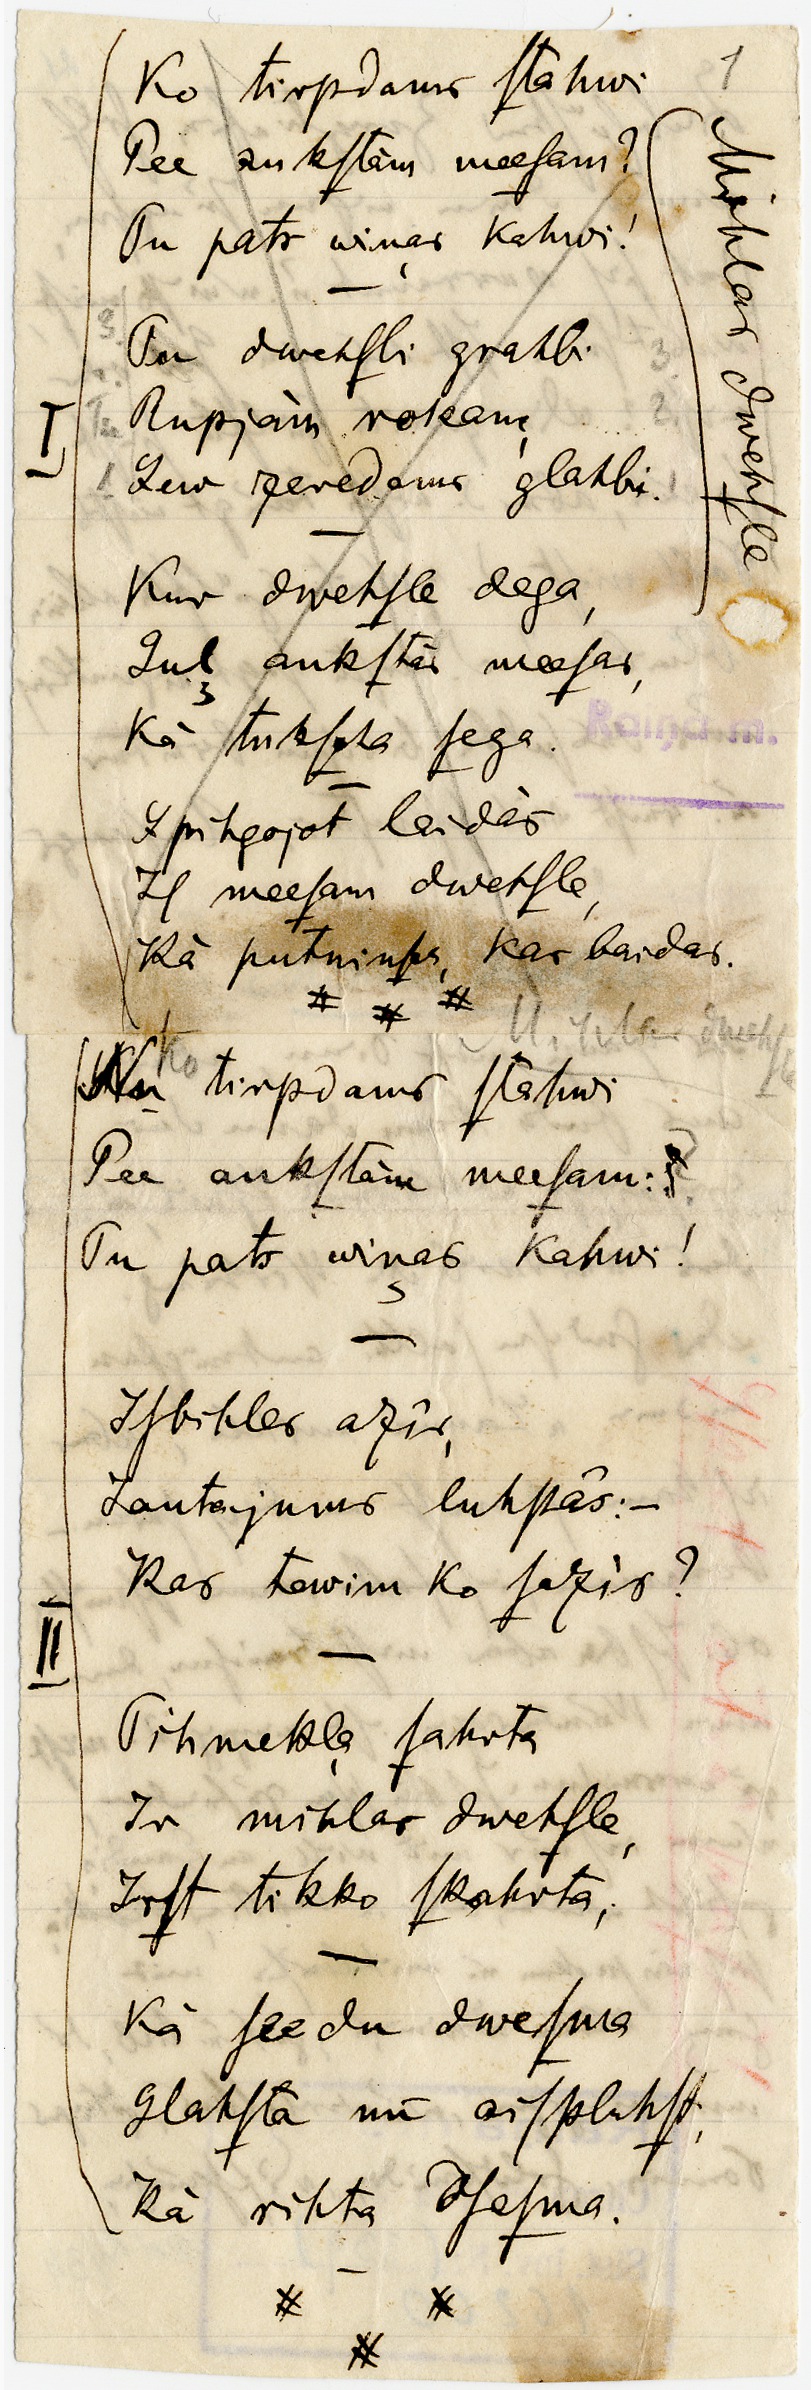 1
Mihlas dwehſle
Ko tirpdams ſtahwi
Pee aukſtàm meeſam?
Tu pats wiņas kahwi!
—
Tu dwehſli grahbi
3.
I
Rupjàm rokam,
2.
1
Zew zeredams glahbi.
1
—
Kur dwehſle dega,
Guļ aukſtàs meeſas,
Kà tukſcha ſega.
Raiņa m.
—
Spihgojot laidàs
Iſ meeſam dwehſle,
Kà putninſch, kas baidas.
* * *
Mihlas dwehſle
Ko
Nu tirpdams ſtahwi
Pee aukſtàm meeſam:?
Tu pats wiņas kahwi!
—
Iſbihles azîs,
Jautajums luhpâs:—
Kas tewim ko ſazîs?
—
II
Tihmekļa ſahrta
Ir mihlas dwehſle,
Irſt tikko ſkahrta,
—
Kà ſeedu dweſma
Glahſta un aiſpluhſt,
Kà rihta dſeſma.
—
* * *